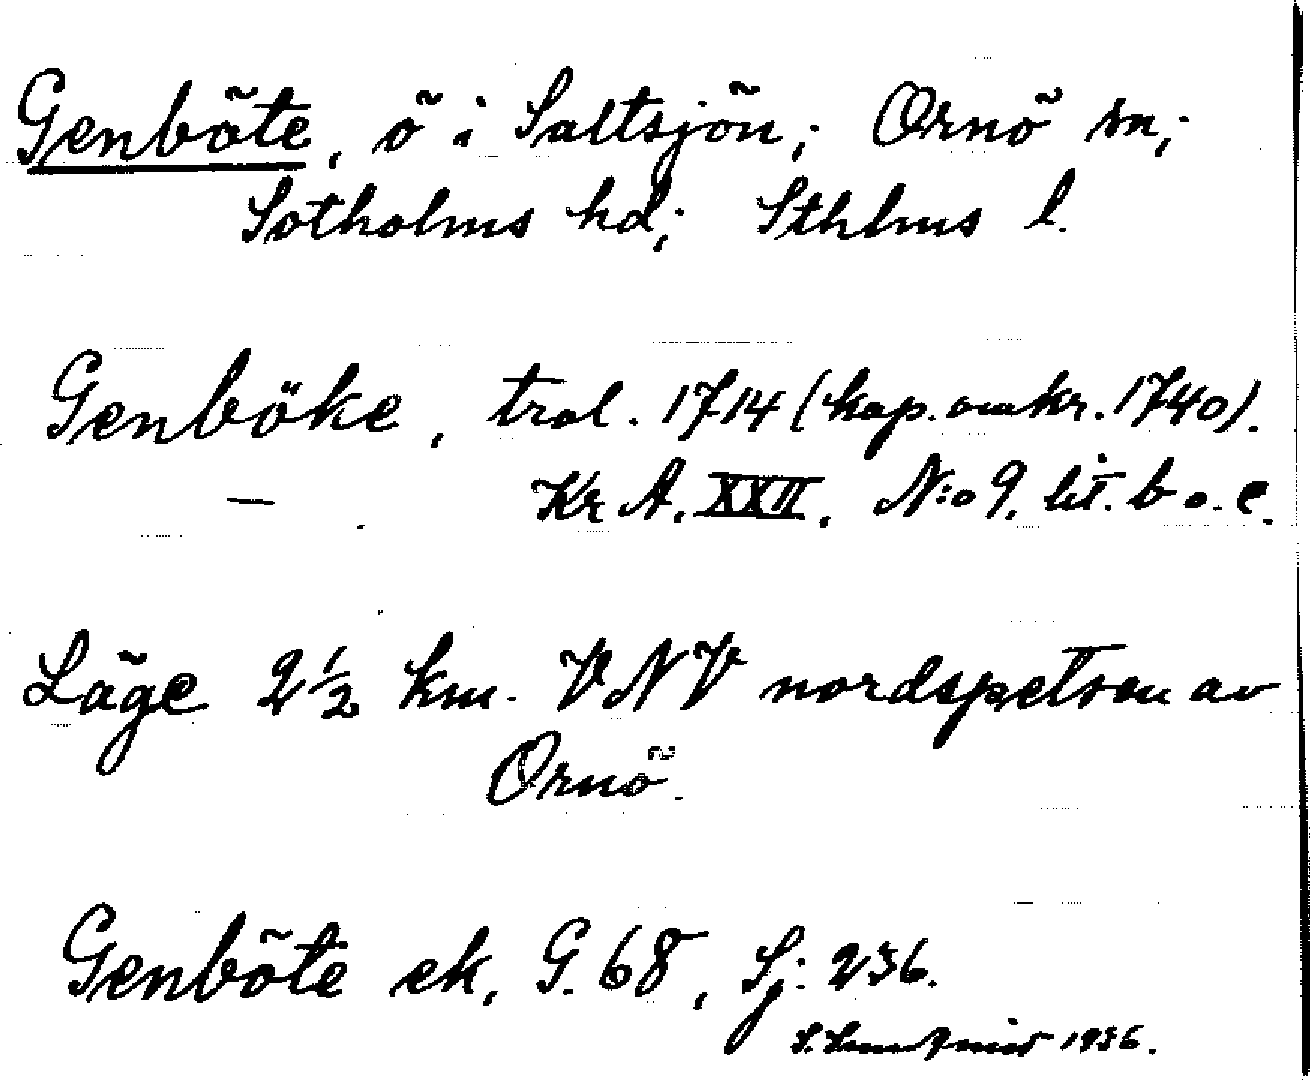 Genböte, ö i Saltsjön; Ornö sn;
Sotholms hd; Sthlms l.
Genböke, trol. 1714 (kop. omkr. 1740).
— KrA. XXII. N:o 9. lit. b o. c.
Läge 2½ km. VNV nordspetsen av
Ornö.
Genböte ek. G. 68, Sj: 236.
1936.